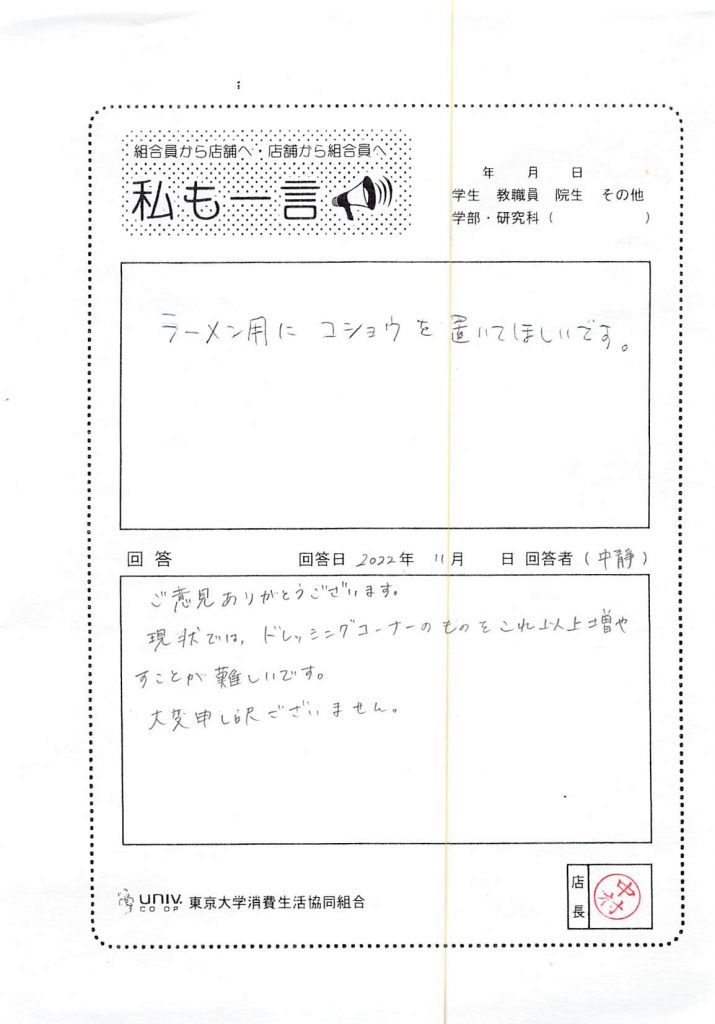 組合員から店舗へ・店舗から組合員へ
私も一言
年 月 日
学生 教職員 院生 その他
学部・研究科（ ）
ラーメン用に コショウを置いてほしいです。
回答 回答日 2022年 11月 日 回答者（中静）
ご意見ありがとうございます。
現状では、ドレッシングコーナーのものをこれ以上増や
すことが難しいです。
大変申し訳ございません。
UNIV.
CO-OP
東京大学消費生活協同組合
店長
中村